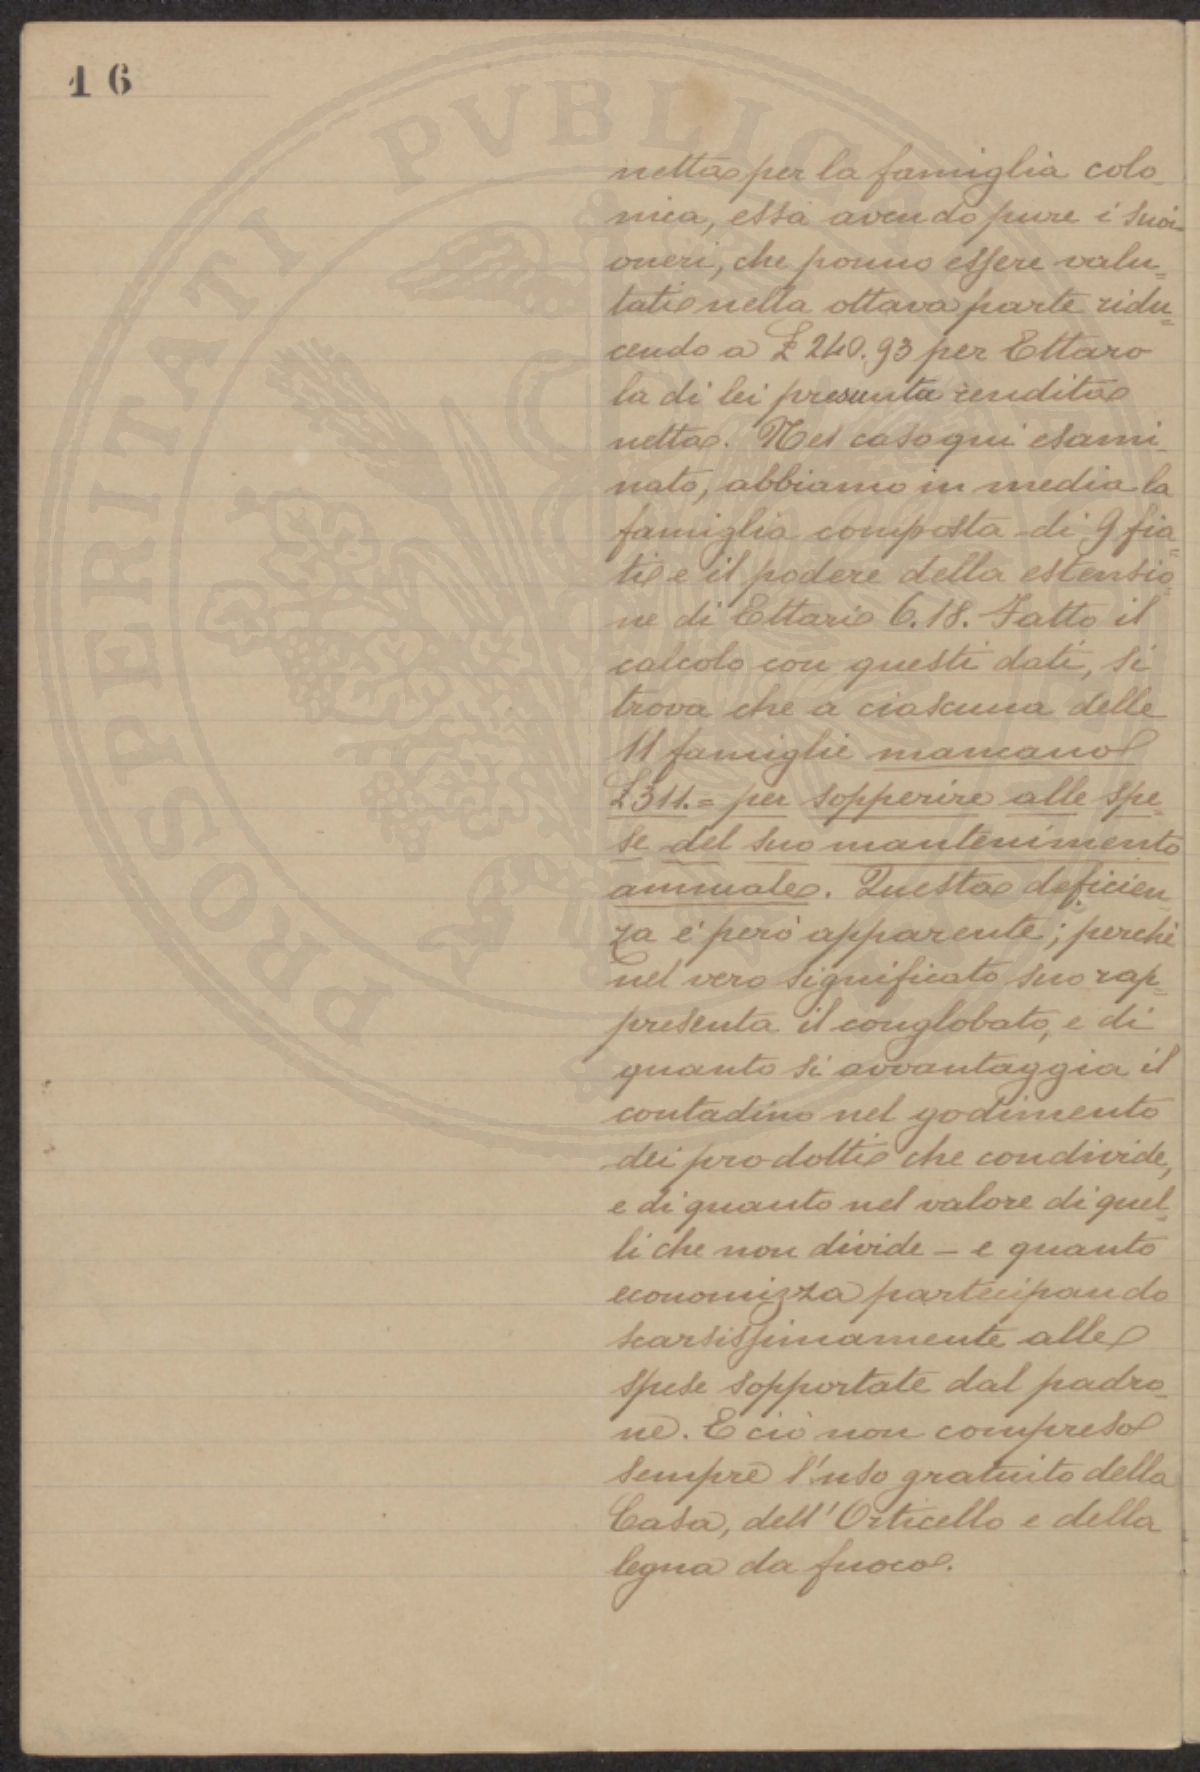 16
PROSPERITATI PVBLICAE
netta per la famiglia colo-
nica, essa avendo pure i suoi
oneri, che ponno essere valu=
tati nella ottava parte ridu=
cendo a £ 240.93 per Ettaro
la di lei presunta rendita
netta. Nel caso qui esami-
nato, abbiamo in media la
famiglia composta di 9 fia=
ti e il podere della estensio-
ne di Ettari 6.18. Fatto il
calcolo con questi dati, si
trova che a ciascuna delle
11 famiglie mancano
£ 311.= per sopperire alle spe-
se del suo mantenimento
annuale. Questa deficien-
za è però apparente; perchè
nel vero significato suo rap=
presenta il conglobato, e di
quanto si avvantaggia il
contadino nel godimento
dei prodotti che condivide,
e di quanto nel valore di quel=
li che non divide – e quanto
economizza partecipando
scarsissimamente alle
spese sopportate dal padro-
ne. E ciò non compreso
sempre l'uso gratuito della
Casa, dell'Orticello e della
legna da fuoco.